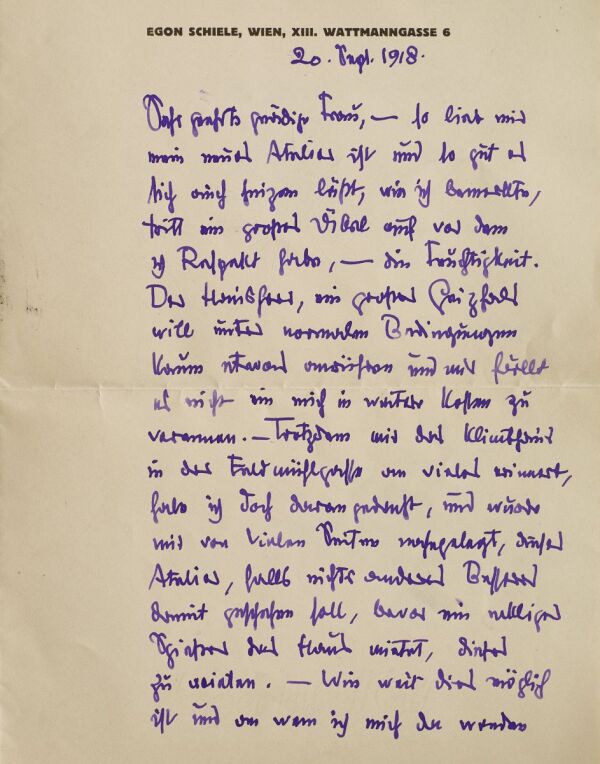 EGON SCHIELE, WIEN, XIII. WATTMANNGASSE 6
20. Sept. 1918.
Sehr geehrte gnädige Frau, — so lieb mir
mein neues Atelier ist und so gut es
sich auch heizen läßt, wie ich bemerkte,
tritt ein großes Übel auf vor dem
ich Respekt habe, — die Feuchtigkeit.
Der Hausherr, ein großer Geizhals
will unter normalen Bedingungen
kaum etwas ausrichten und mir fällt
es nicht ein mich in weitere Kosten zu
verrennen. — Trotzdem mir das Klimthaus
in der Feldmühlgasse an vieles erinnert,
habe ich doch daran gedacht, und wurde
mir von vielen Seiten nahegelegt, dieses
Atelier, falls nichts anderes Besseres
damit geschehen soll, bevor ein ekliger
Spießer das Haus mietet, dieses
zu mieten. — Wie weit dies möglich
ist und an wem ich mich da wenden